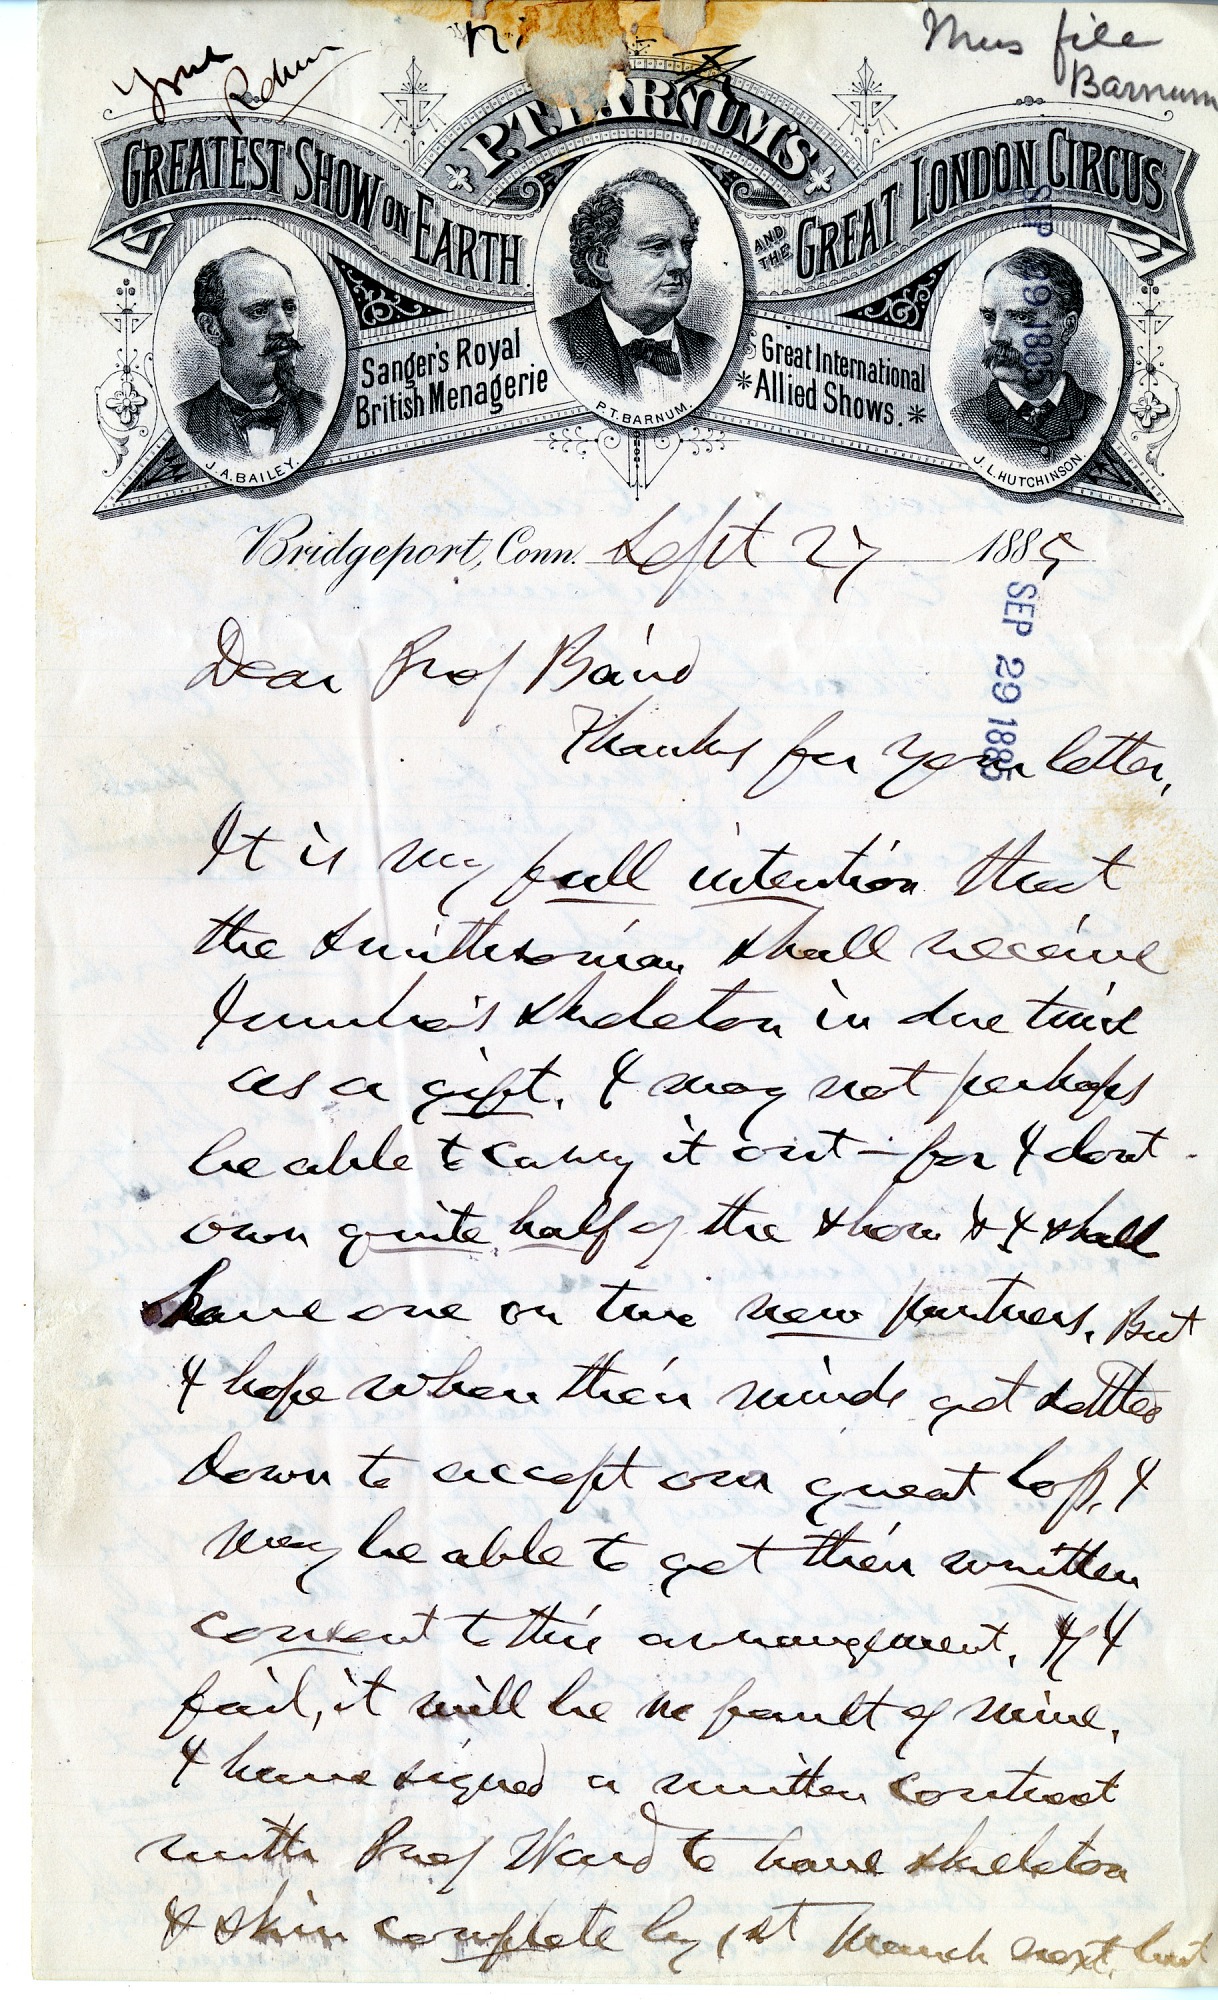 Mus file
Barnum
P.T. BARNUM'S
GREATEST SHOW ON EARTH
AND THE
GREAT LONDON CIRCUS
Sanger's Royal
British Menagerie
Great International
*Allied Shows.*
J.A. BAILEY.
P.T. BARNUM.
J.L. HUTCHINSON.
SEP 29 1885
Bridgeport, Conn. Sept 27 1885
SEP 29 1885
Dear Prof Baird
Thanks for your letter,
It is my full intention that
the Smithsonian shall receive
Jumbo's skeleton in due time
as a gift. I may not perhaps
be able to carry it out — for I dont
own quite half of the show & I shall
have one or two new partners. But
I hope when their minds get settled
down to accept our great loss, I
may be able to get their written
consent to this arrangement. If I
fail, it will be no fault of mine.
I have signed a written contract
with Prof Ward to have skeleton
& skin complete by 1st March next, but